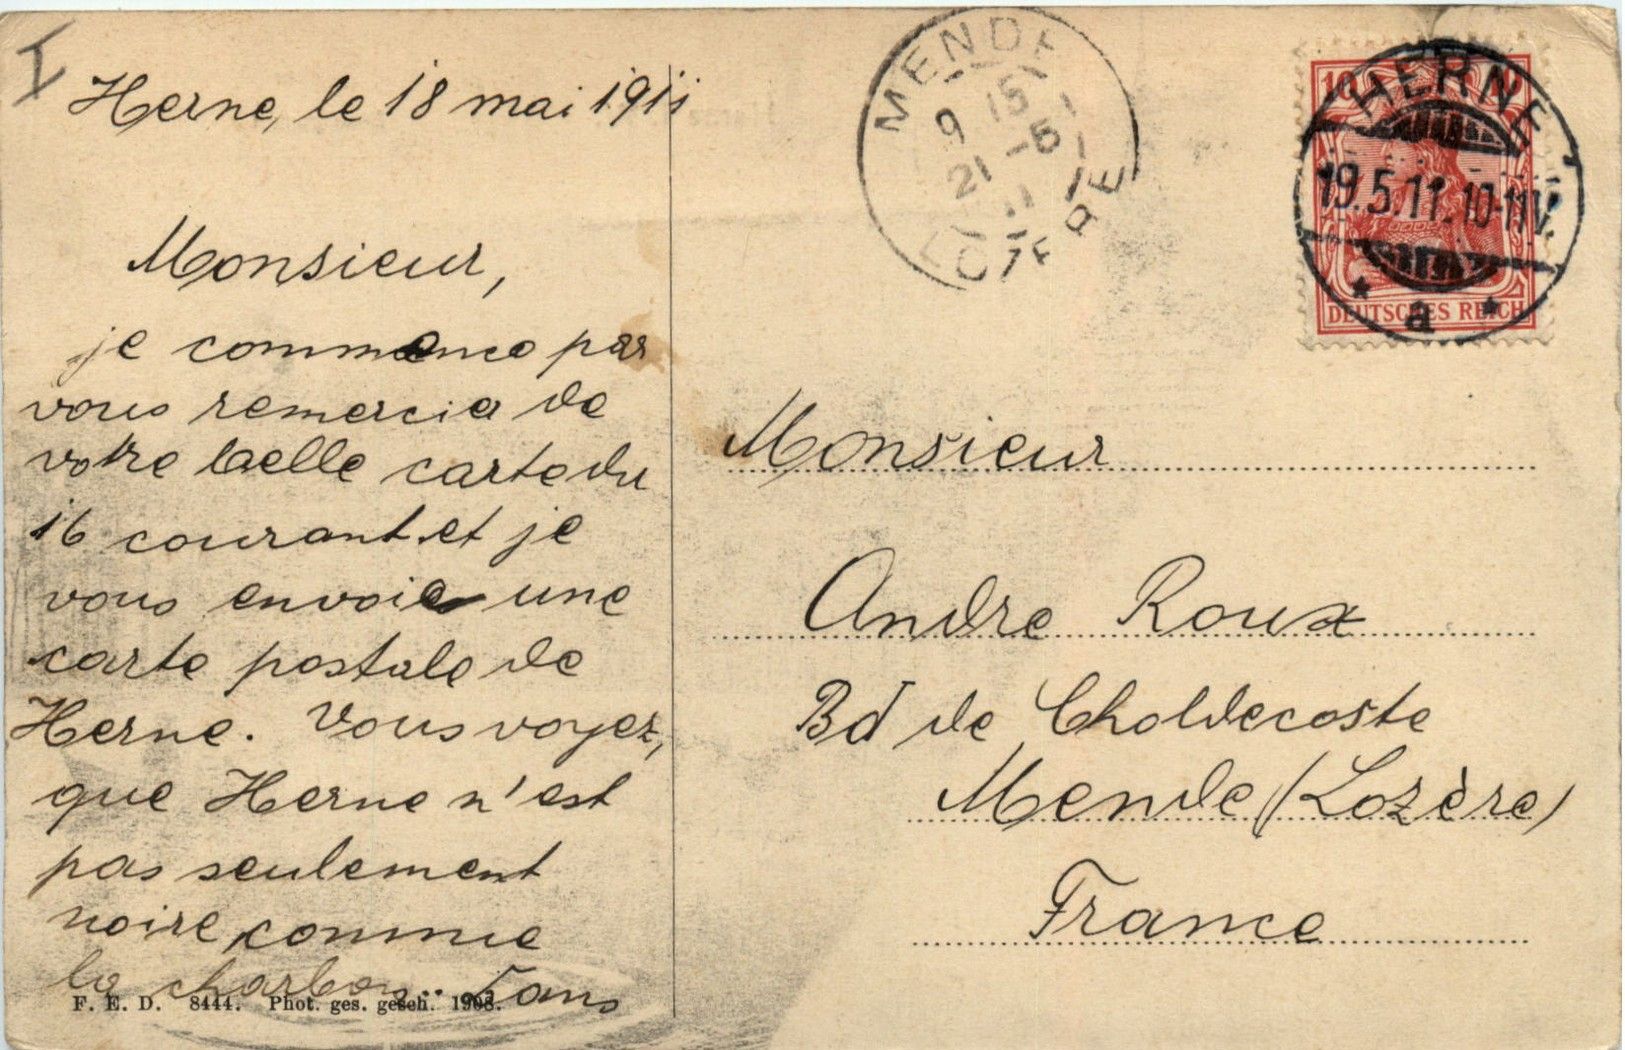 I
Herne, le 18 mai 1911
Monsieur,
je commence par
vous remercier de
votre belle carte du
16 courant et je
vous envoie une
carte postale de
Herne. Vous voyez,
que Herne n'est
pas seulement
noire, comme
le charbon..
F. E. D. 8444. Phot. ges. gesch. 1908.
MENDE
9 15
21 -5
11
LOZERE
10 10
HERNE
19.5.11.10-11V.
* a *
DEUTSCHES REICH
Monsieur
Andre Roux
Bd de Choldecoste
Mende (Lozère)
France